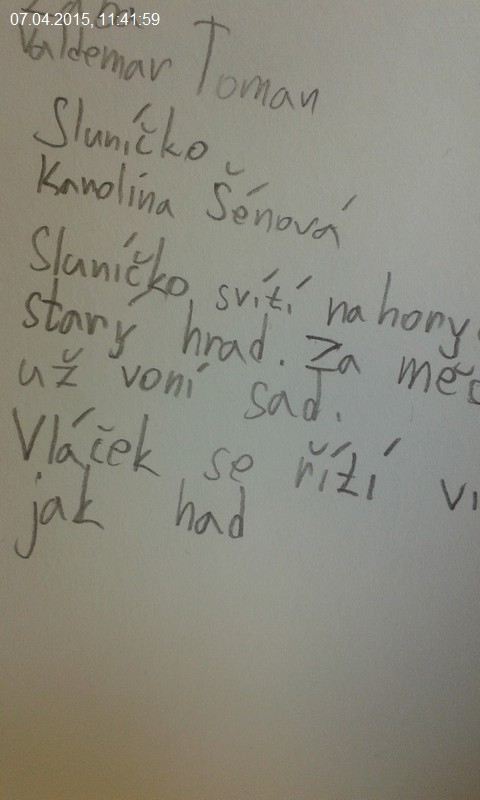 07.04.2015, 11:41:59
Valdemar Toman
Sluníčko
Karolína Šénová
Sluníčko svítí na hony
starý hrad. Za měs
už voní sad.
Vláček se řítí vi
jak had